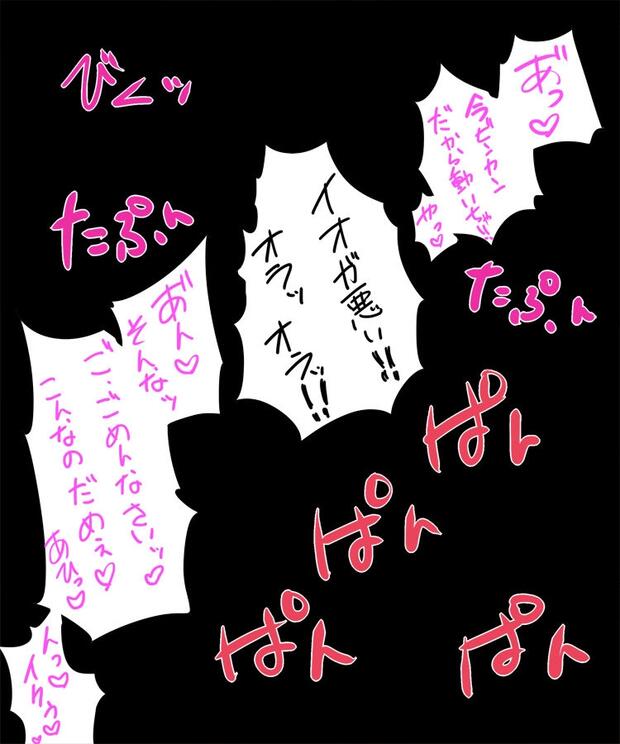 あ゛っ♡
今ビンカン
だから動いちゃ
やっ♡
びくッ
たぷん
イオが悪い!!
オラッ オラッ!!
たぷん
あ゛ん♡
そんなッ
ご、ごめんなさいッ♡
こんなのだめぇ♡
あひっ♡
ぱん
ぱん
ぱん
ぱん
んっ♡
イクぅ♡